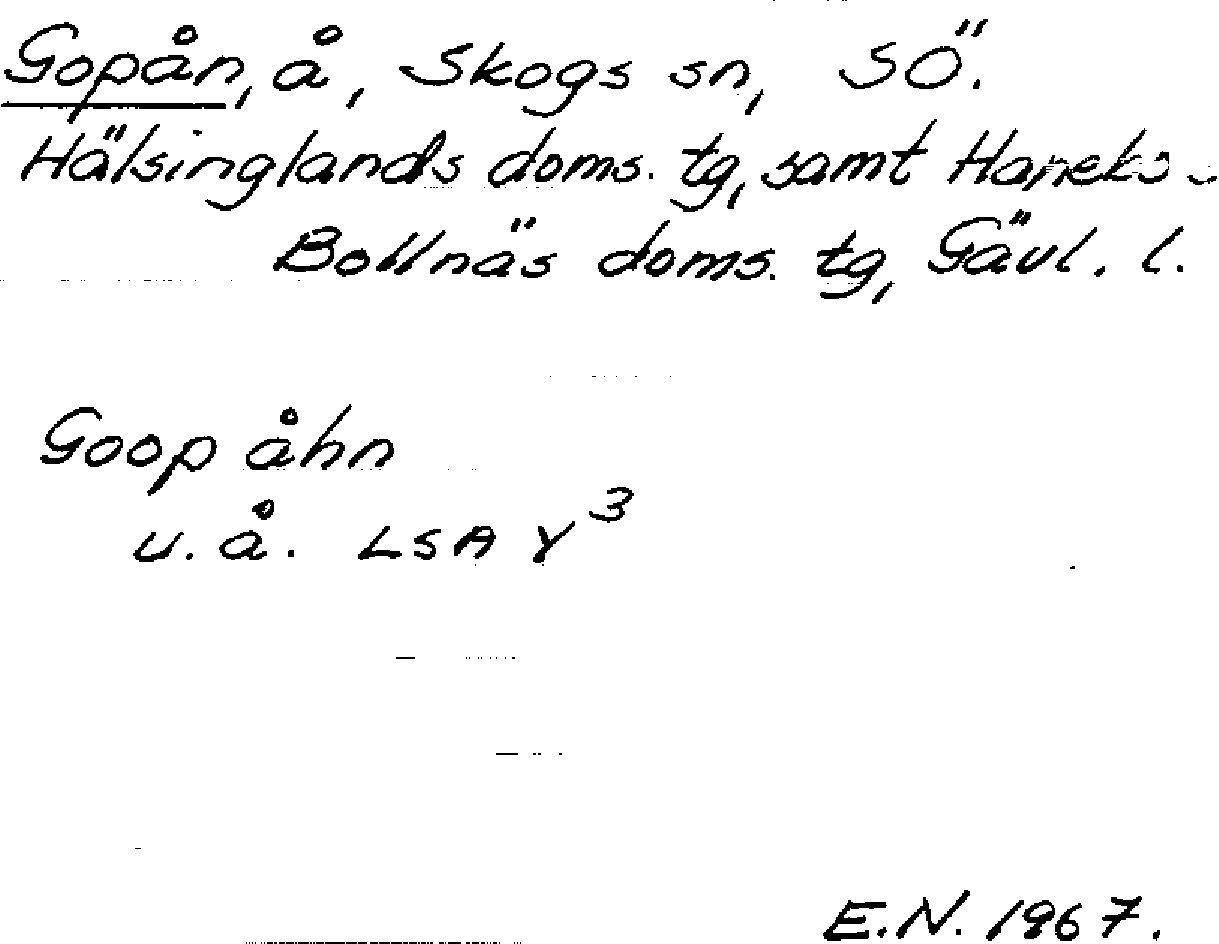 Gopån, å, Skogs sn, SÖ.
Hälsinglands doms. tg, samt Haneks-
Bollnäs doms. tg, Gävl. l.
Goop åhn
u.å. LSA Y³
E.N. 1967.